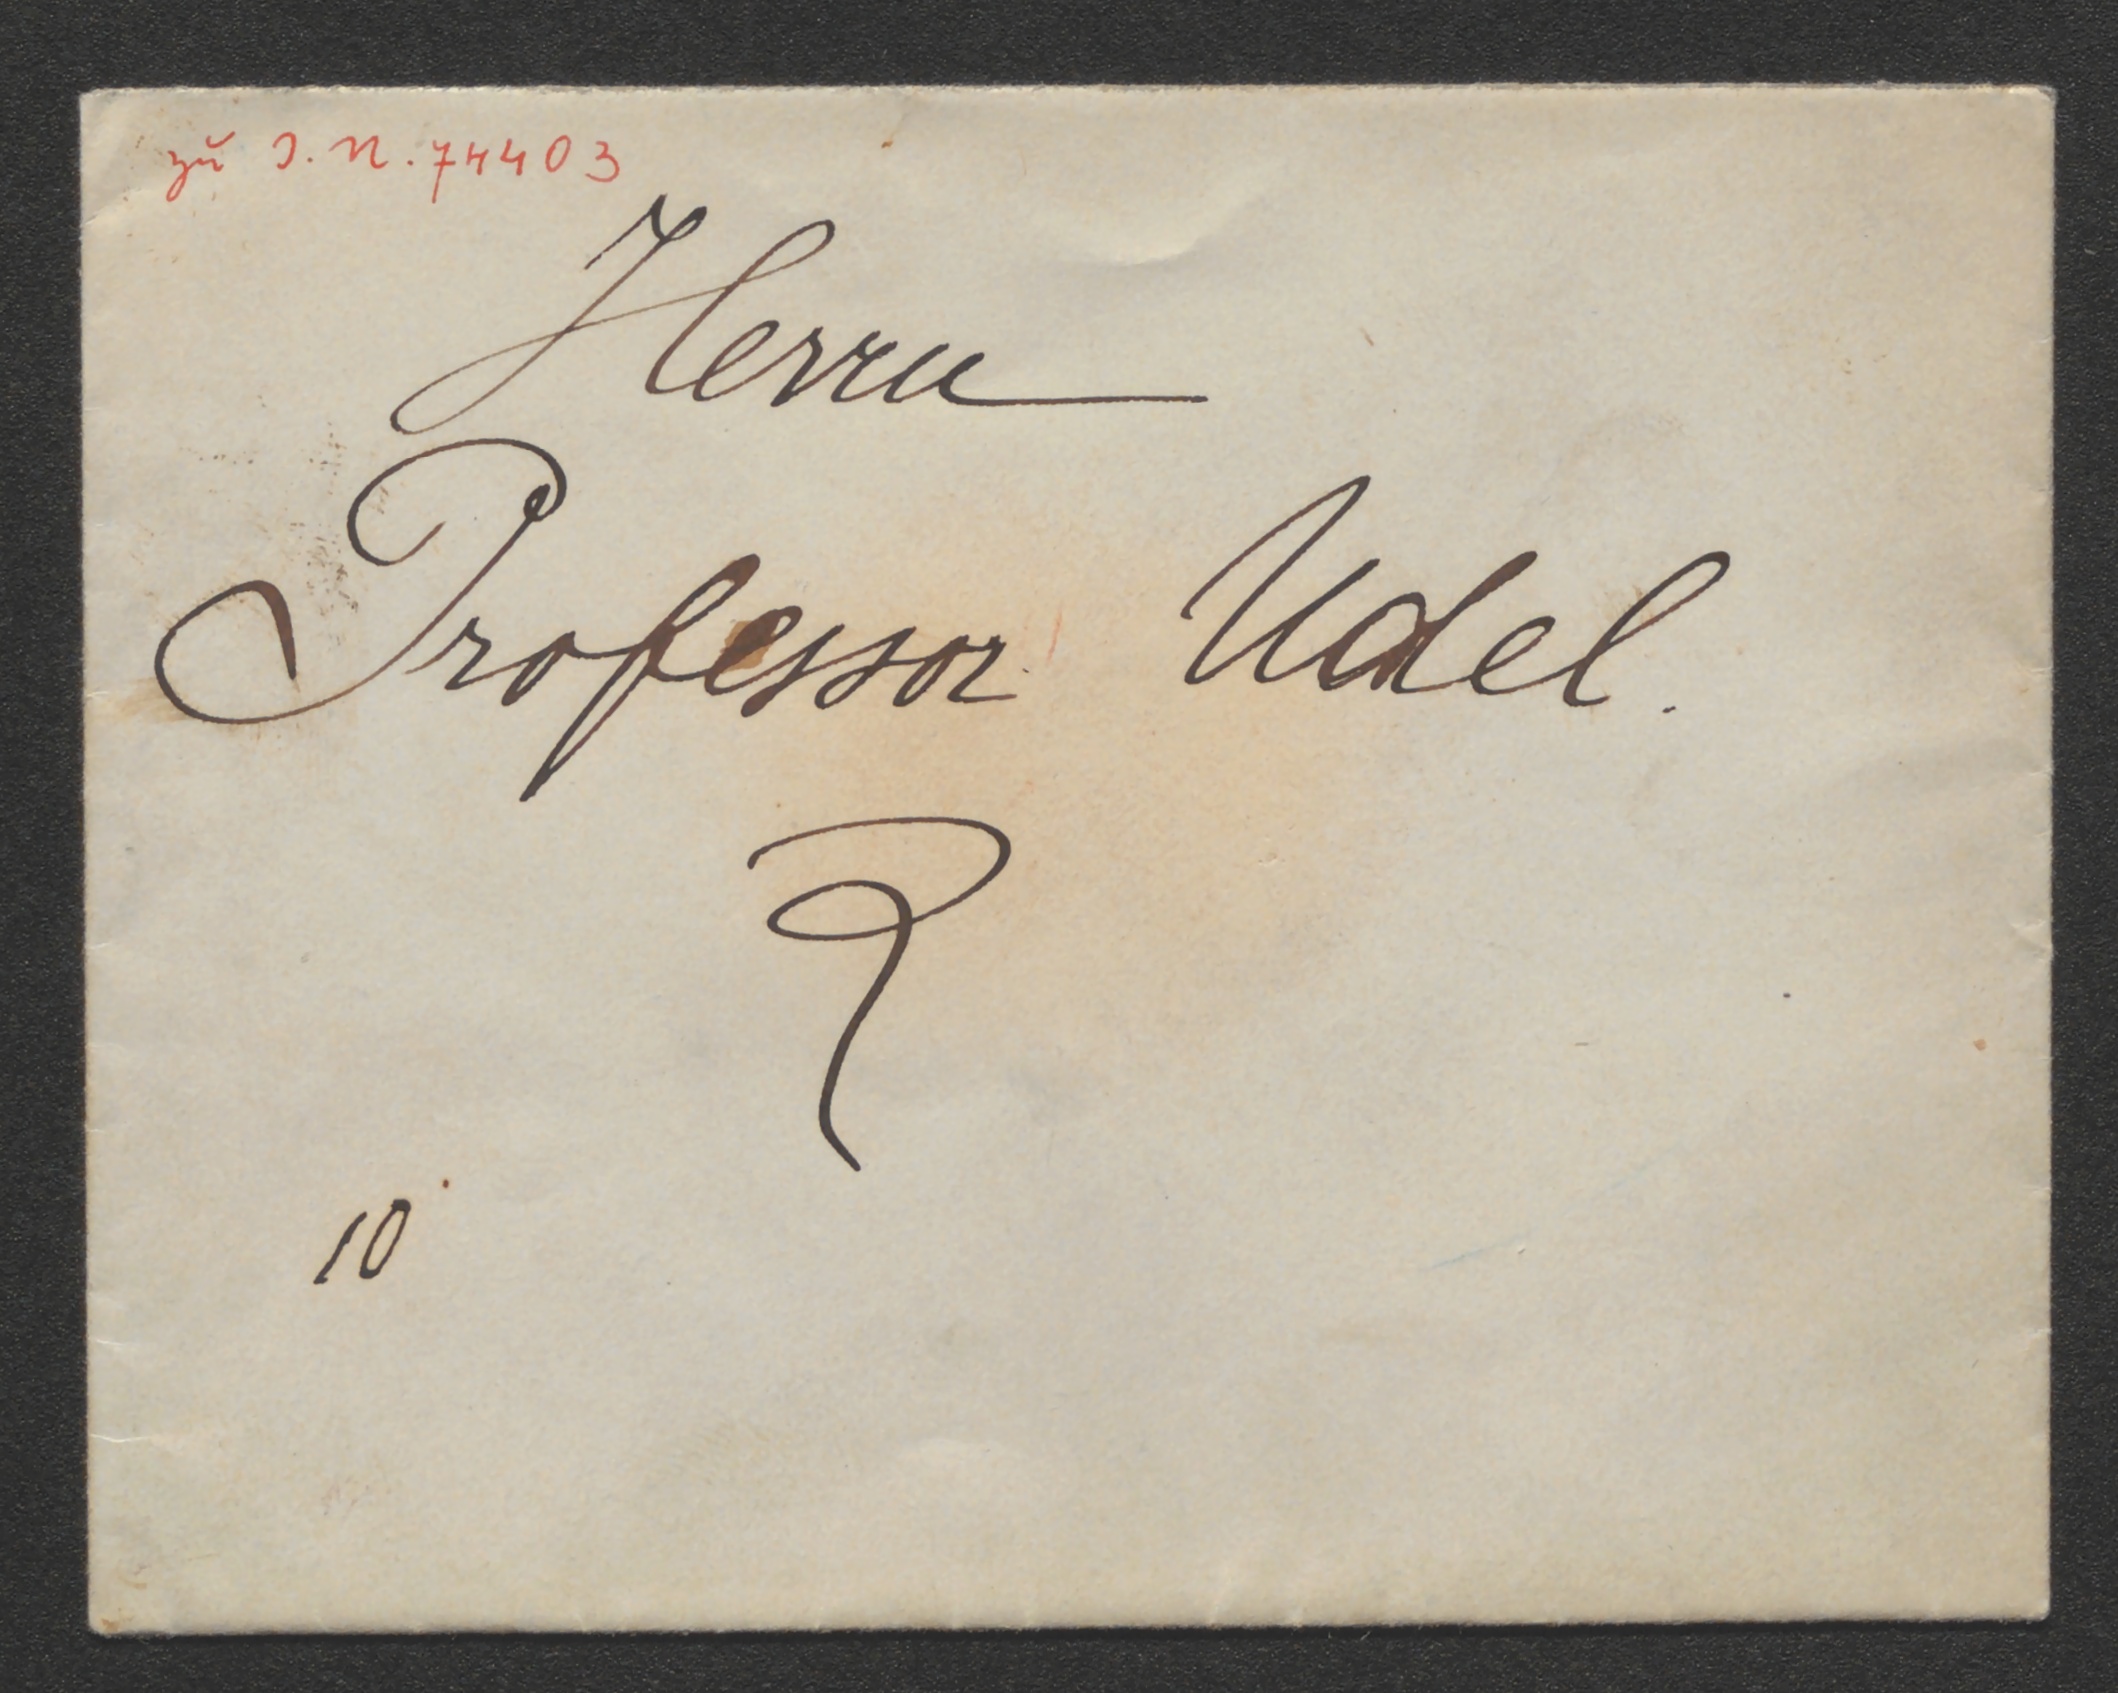 zu I.N. 74403
Herrn
Professor Udel.
10